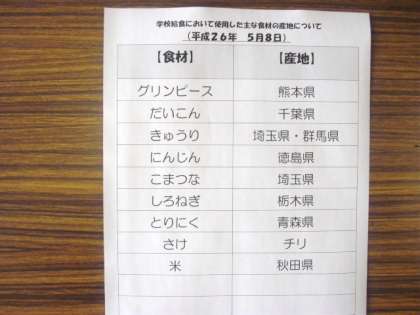 学校給食において使用した主な食材の産地について
(平成26年 5月8日)
【食材】 【産地】
グリンピース 熊本県
だいこん 千葉県
きゅうり 埼玉県・群馬県
にんじん 徳島県
こまつな 埼玉県
しろねぎ 栃木県
とりにく 青森県
さけ チリ
米 秋田県